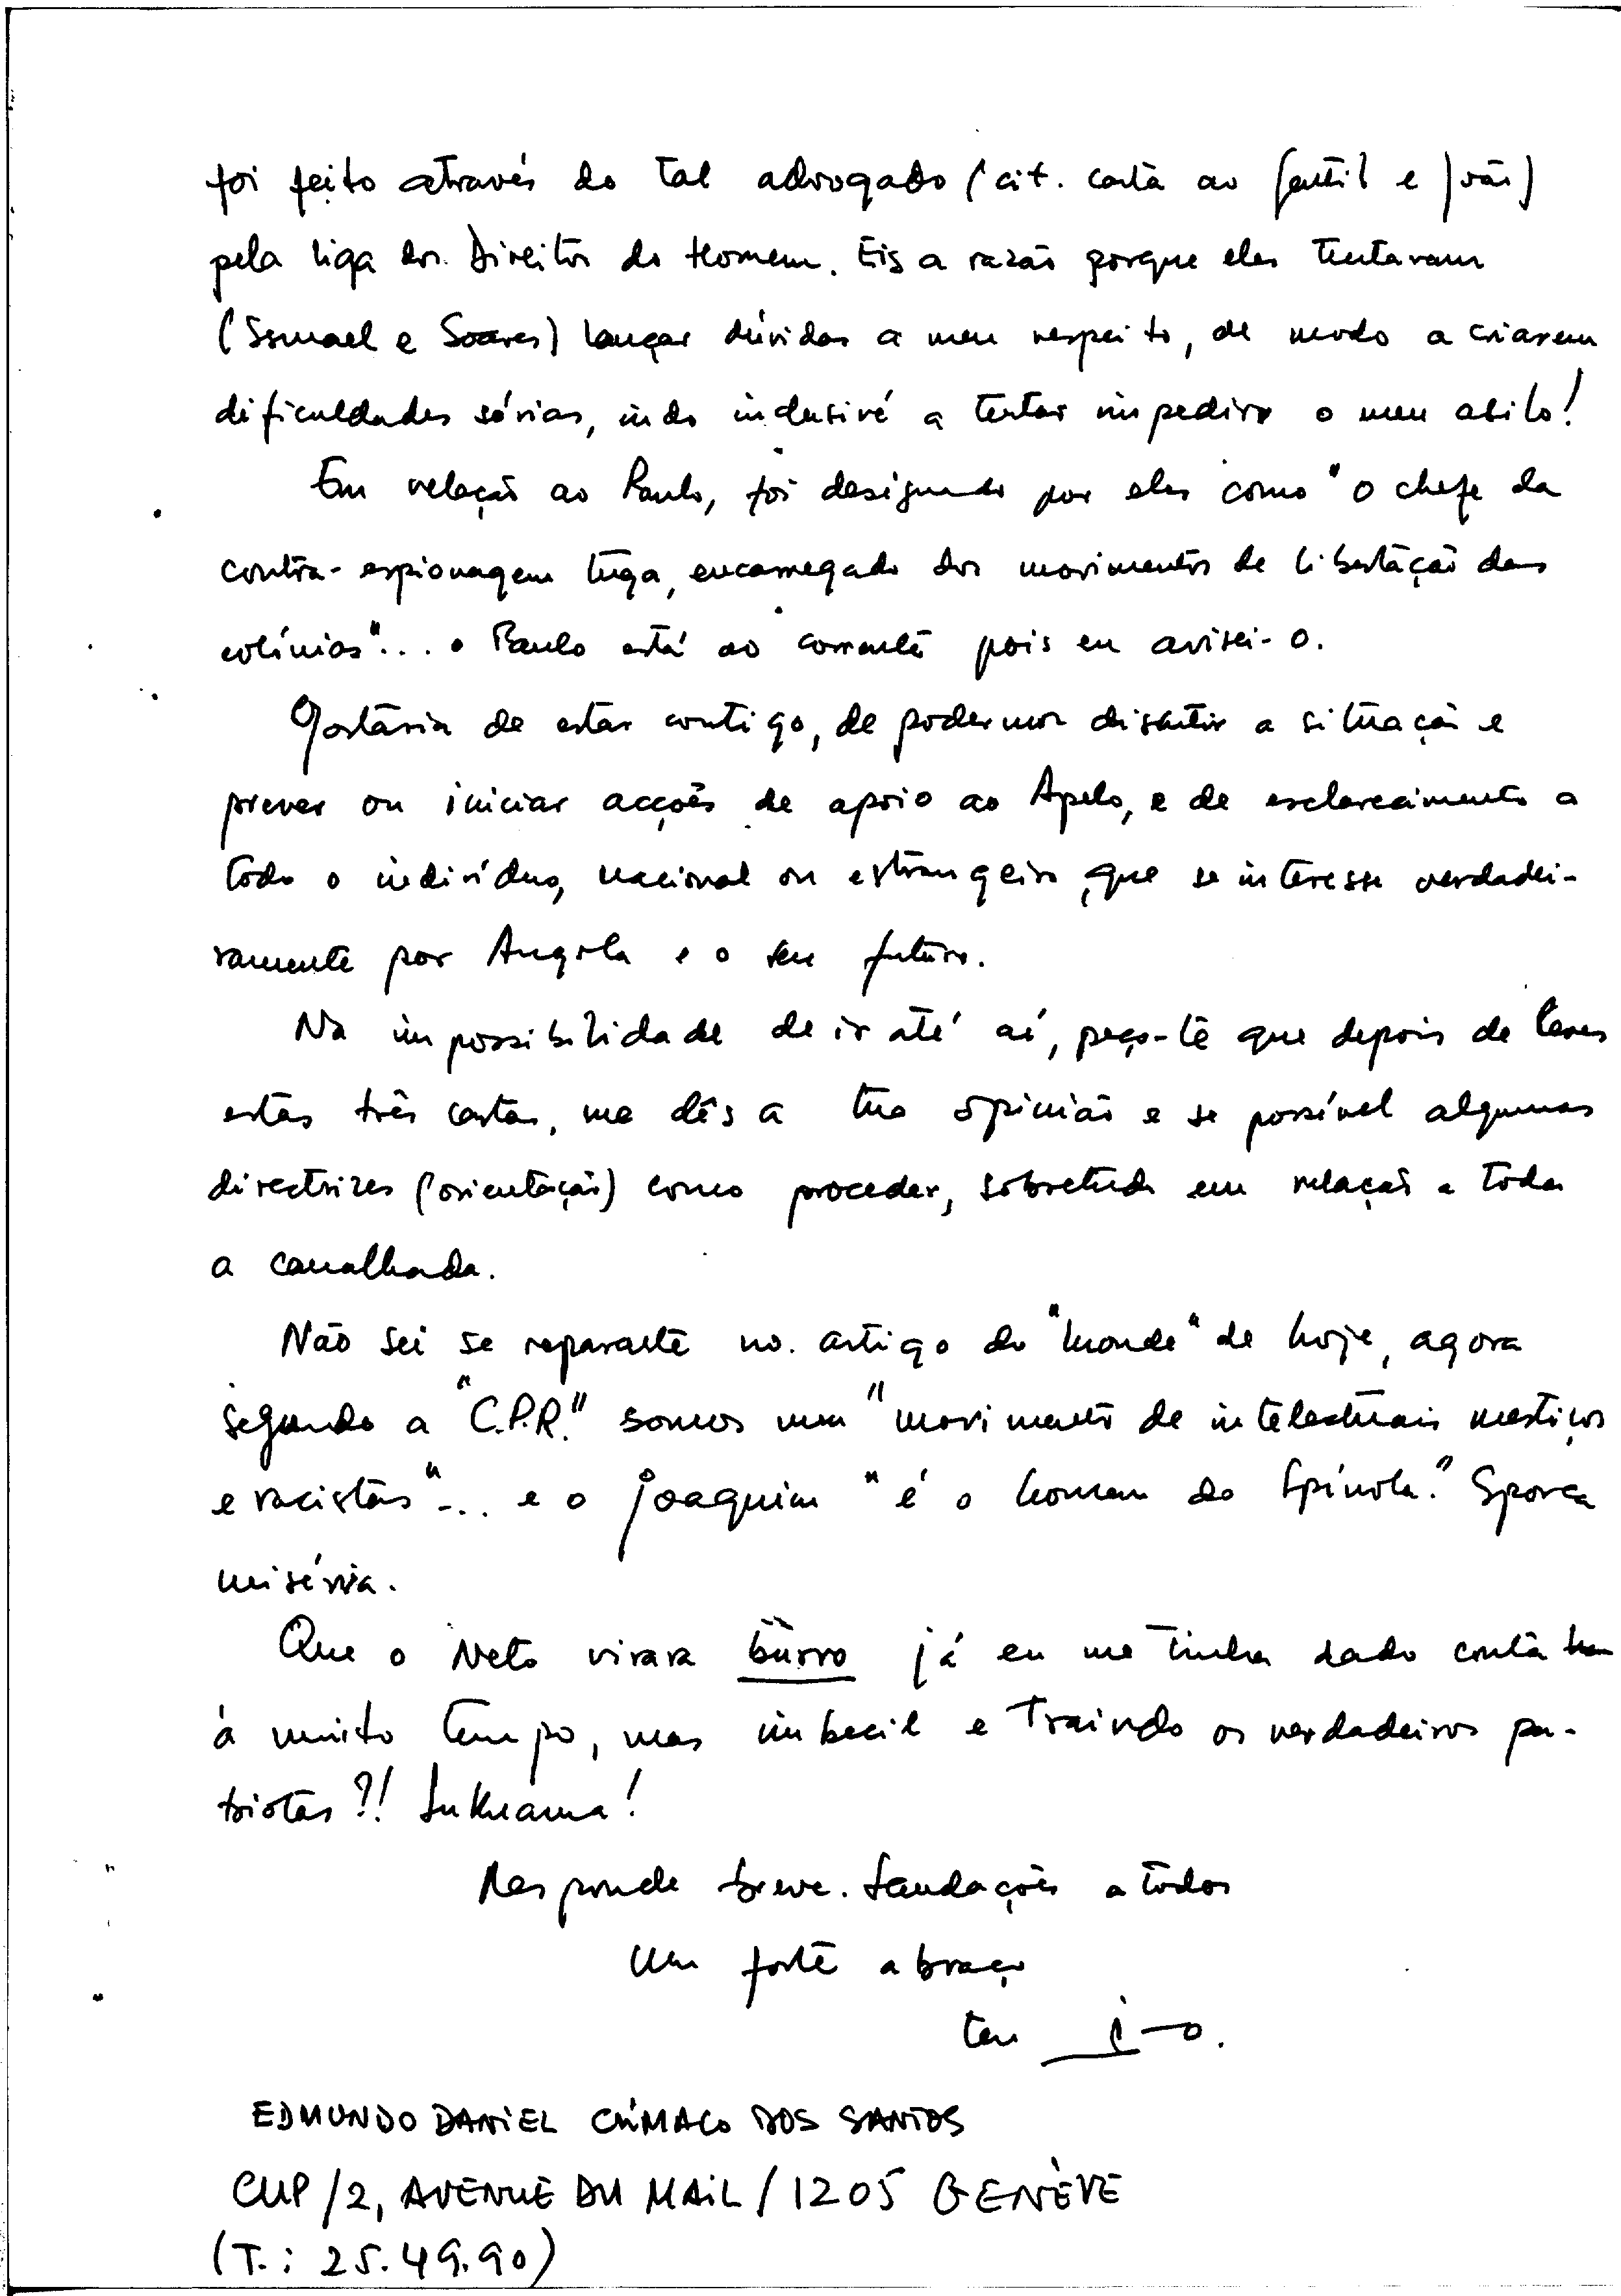 foi feito através do tal advogado (cit. carta ao Gentil e João)
pela liga dos Direitos do Homem. Eis a razão porque eles tentavam
(Ismael e Soares) lançar dúvidas a meu respeito, de modo a criarem
dificuldades sérias, indo inclusivé a tentar impedire o meu asilo!
Em relação ao Paulo, foi designado por eles como "o chefe da
contra-espionagem tuga, encarregado dos movimentos de libertação das
colónias"... o Paulo está ao corrente pois eu avisei-o.
Gostaria de estar contigo, de podermos discutir a situação e
prever ou iniciar acções de apoio ao Apelo, e de esclarecimento a
todo o indivíduo, nacional ou estrangeiro, que se interesse verdadei-
ramente por Angola e o seu futuro.
Na impossibilidade de ir até aí, peço-te que depois de leres
estas três cartas, me dês a tua opinião e se possível algumas
directrizes (orientação) como proceder, sobretudo em relação a toda
a canalhada.
Não sei se reparaste no artigo do "Monde" de hoje, agora
segundo a "C.P.R." somos um "movimento de intelectuais mestiços
e racistas"... e o Joaquim "é o homem do Spínola." Sporca
miséria.
Que o Neto virara burro já eu me tinha dado conta
à muito tempo, mas imbecil e traindo os verdadeiros pa-
triotas?! Sukuama!
Responde breve. Saudações a todos
Um forte abraço
teu
EDMUNDO DANIEL CLÍMACO DOS SANTOS
CUP/2, AVENUE DU MAIL/1205 GENÈVE
(T.: 25.49.90)